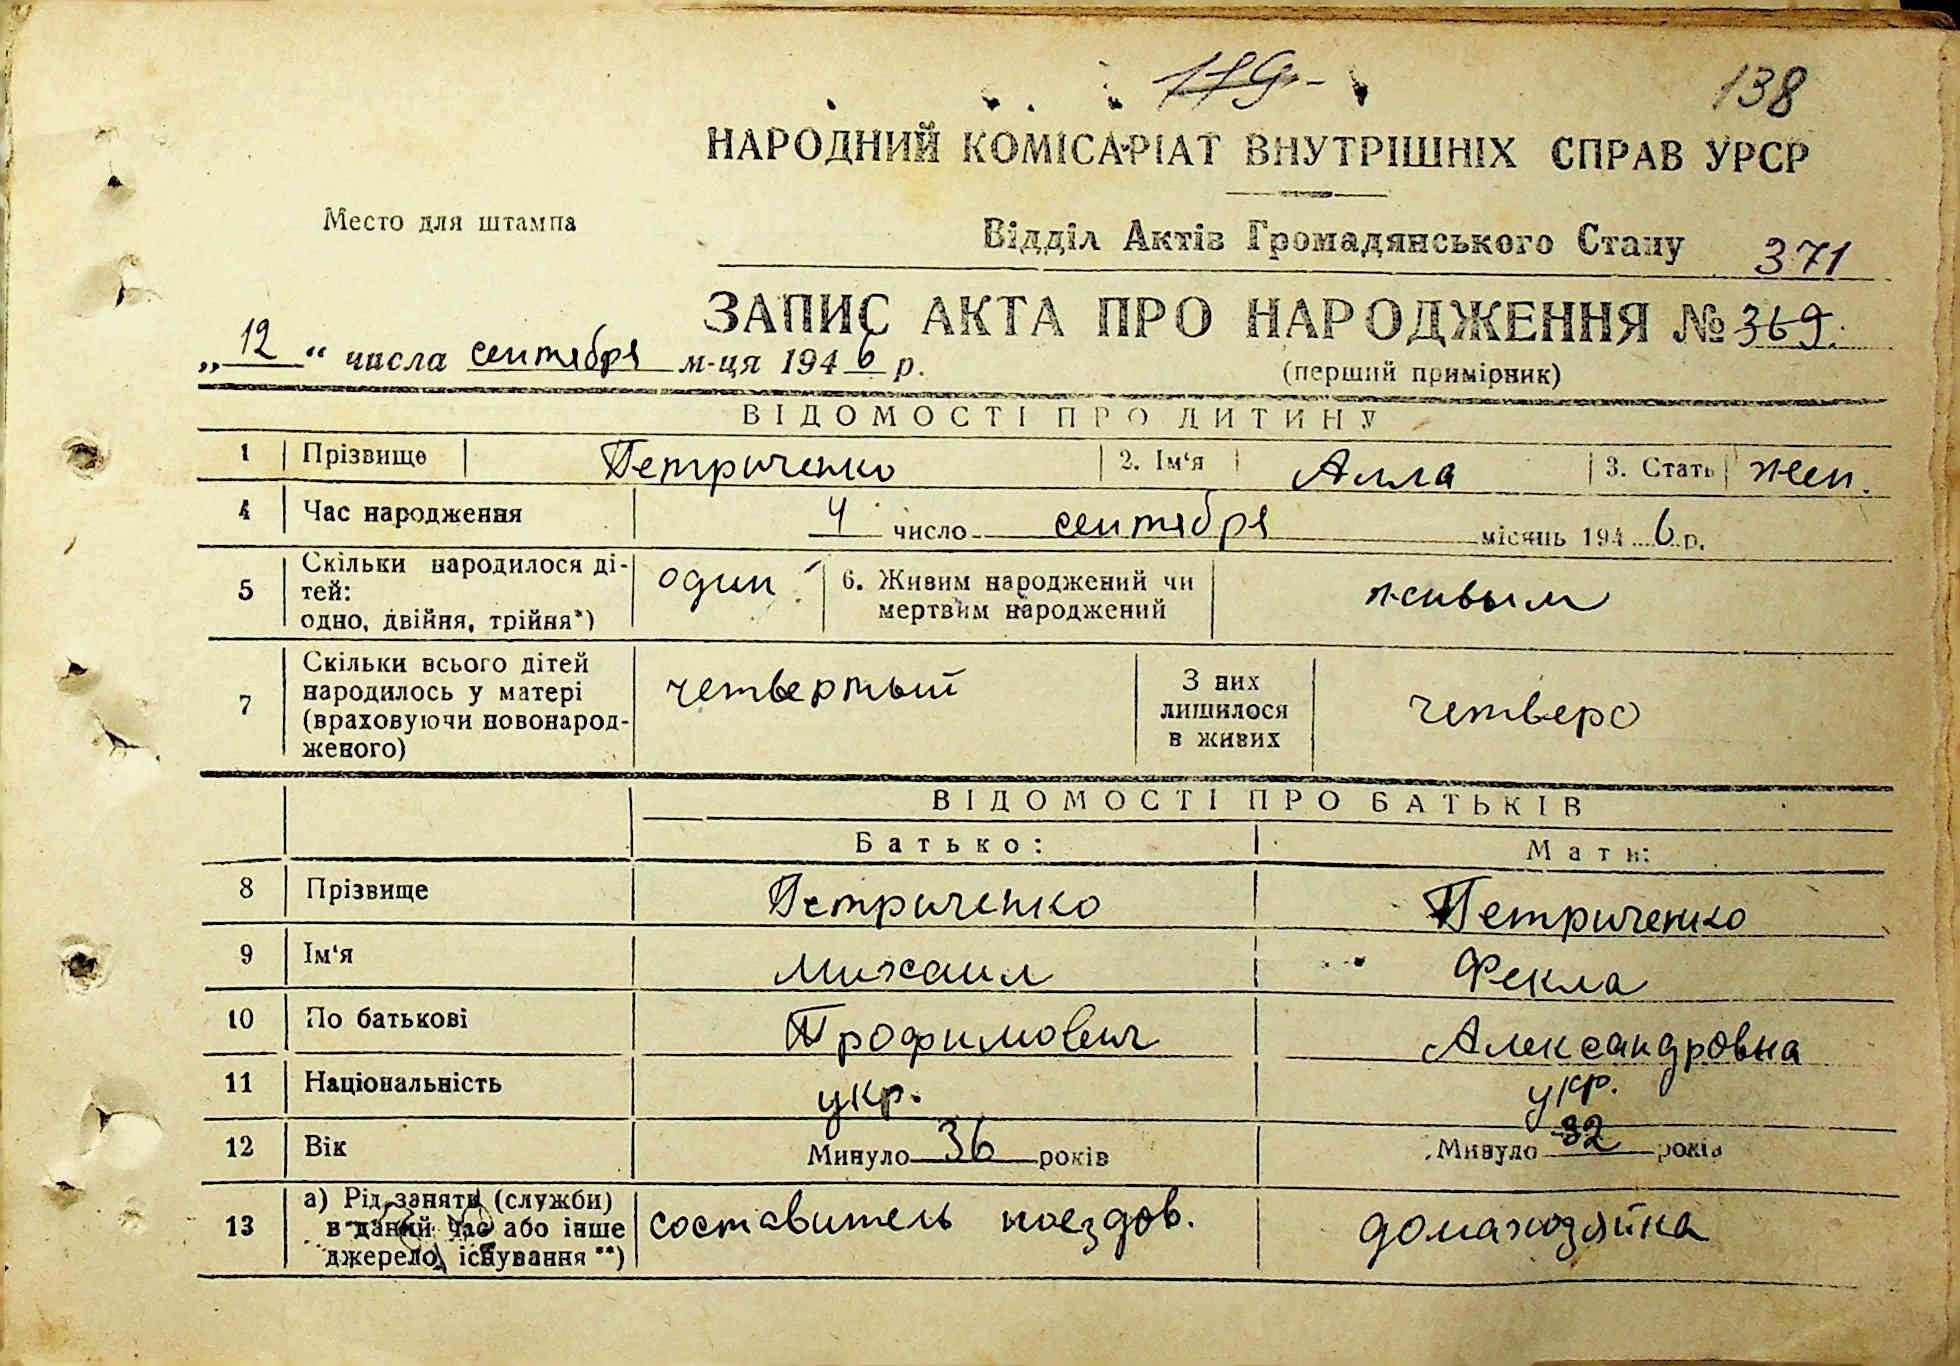 179.
138
НАРОДНИЙ КОМІСАРІАТ ВНУТРІШНІХ СПРАВ УРСР
Место для штампа
Відділ Актів Громадянського Стану 371
ЗАПИС АКТА ПРО НАРОДЖЕННЯ № 369.
„12“ числа сентября м-ця 1946 р.
(перший примірник)
ВІДОМОСТІ ПРО ДИТИНУ
1 Прізвище Петриченко 2. Ім‘я Алла 3. Стать жен.
4 Час народження 4 число сентября місяць 1946 р.
5 Скільки народилося ді-
тей:
одно, двійня, трійня*)
один
6. Живим народжений чи
мертвим народжений
живым
7 Скільки всього дітей
народилось у матері
(враховуючи новонарод-
женого)
четвертый
З них
лишилося
в живих
четверо
ВІДОМОСТІ ПРО БАТЬКІВ
Батько: Мати:
8 Прізвище Петриченко Петриченко
9 Ім‘я Михаил Фекла
10 По батькові Трофимович Александровна
11 Національність укр. укр.
12 Вік Минуло 36 років Минуло 32 років
13 а) Рід занять (служби)
в даний час або інше
джерело існування **)
составитель поездов. домахозяйка